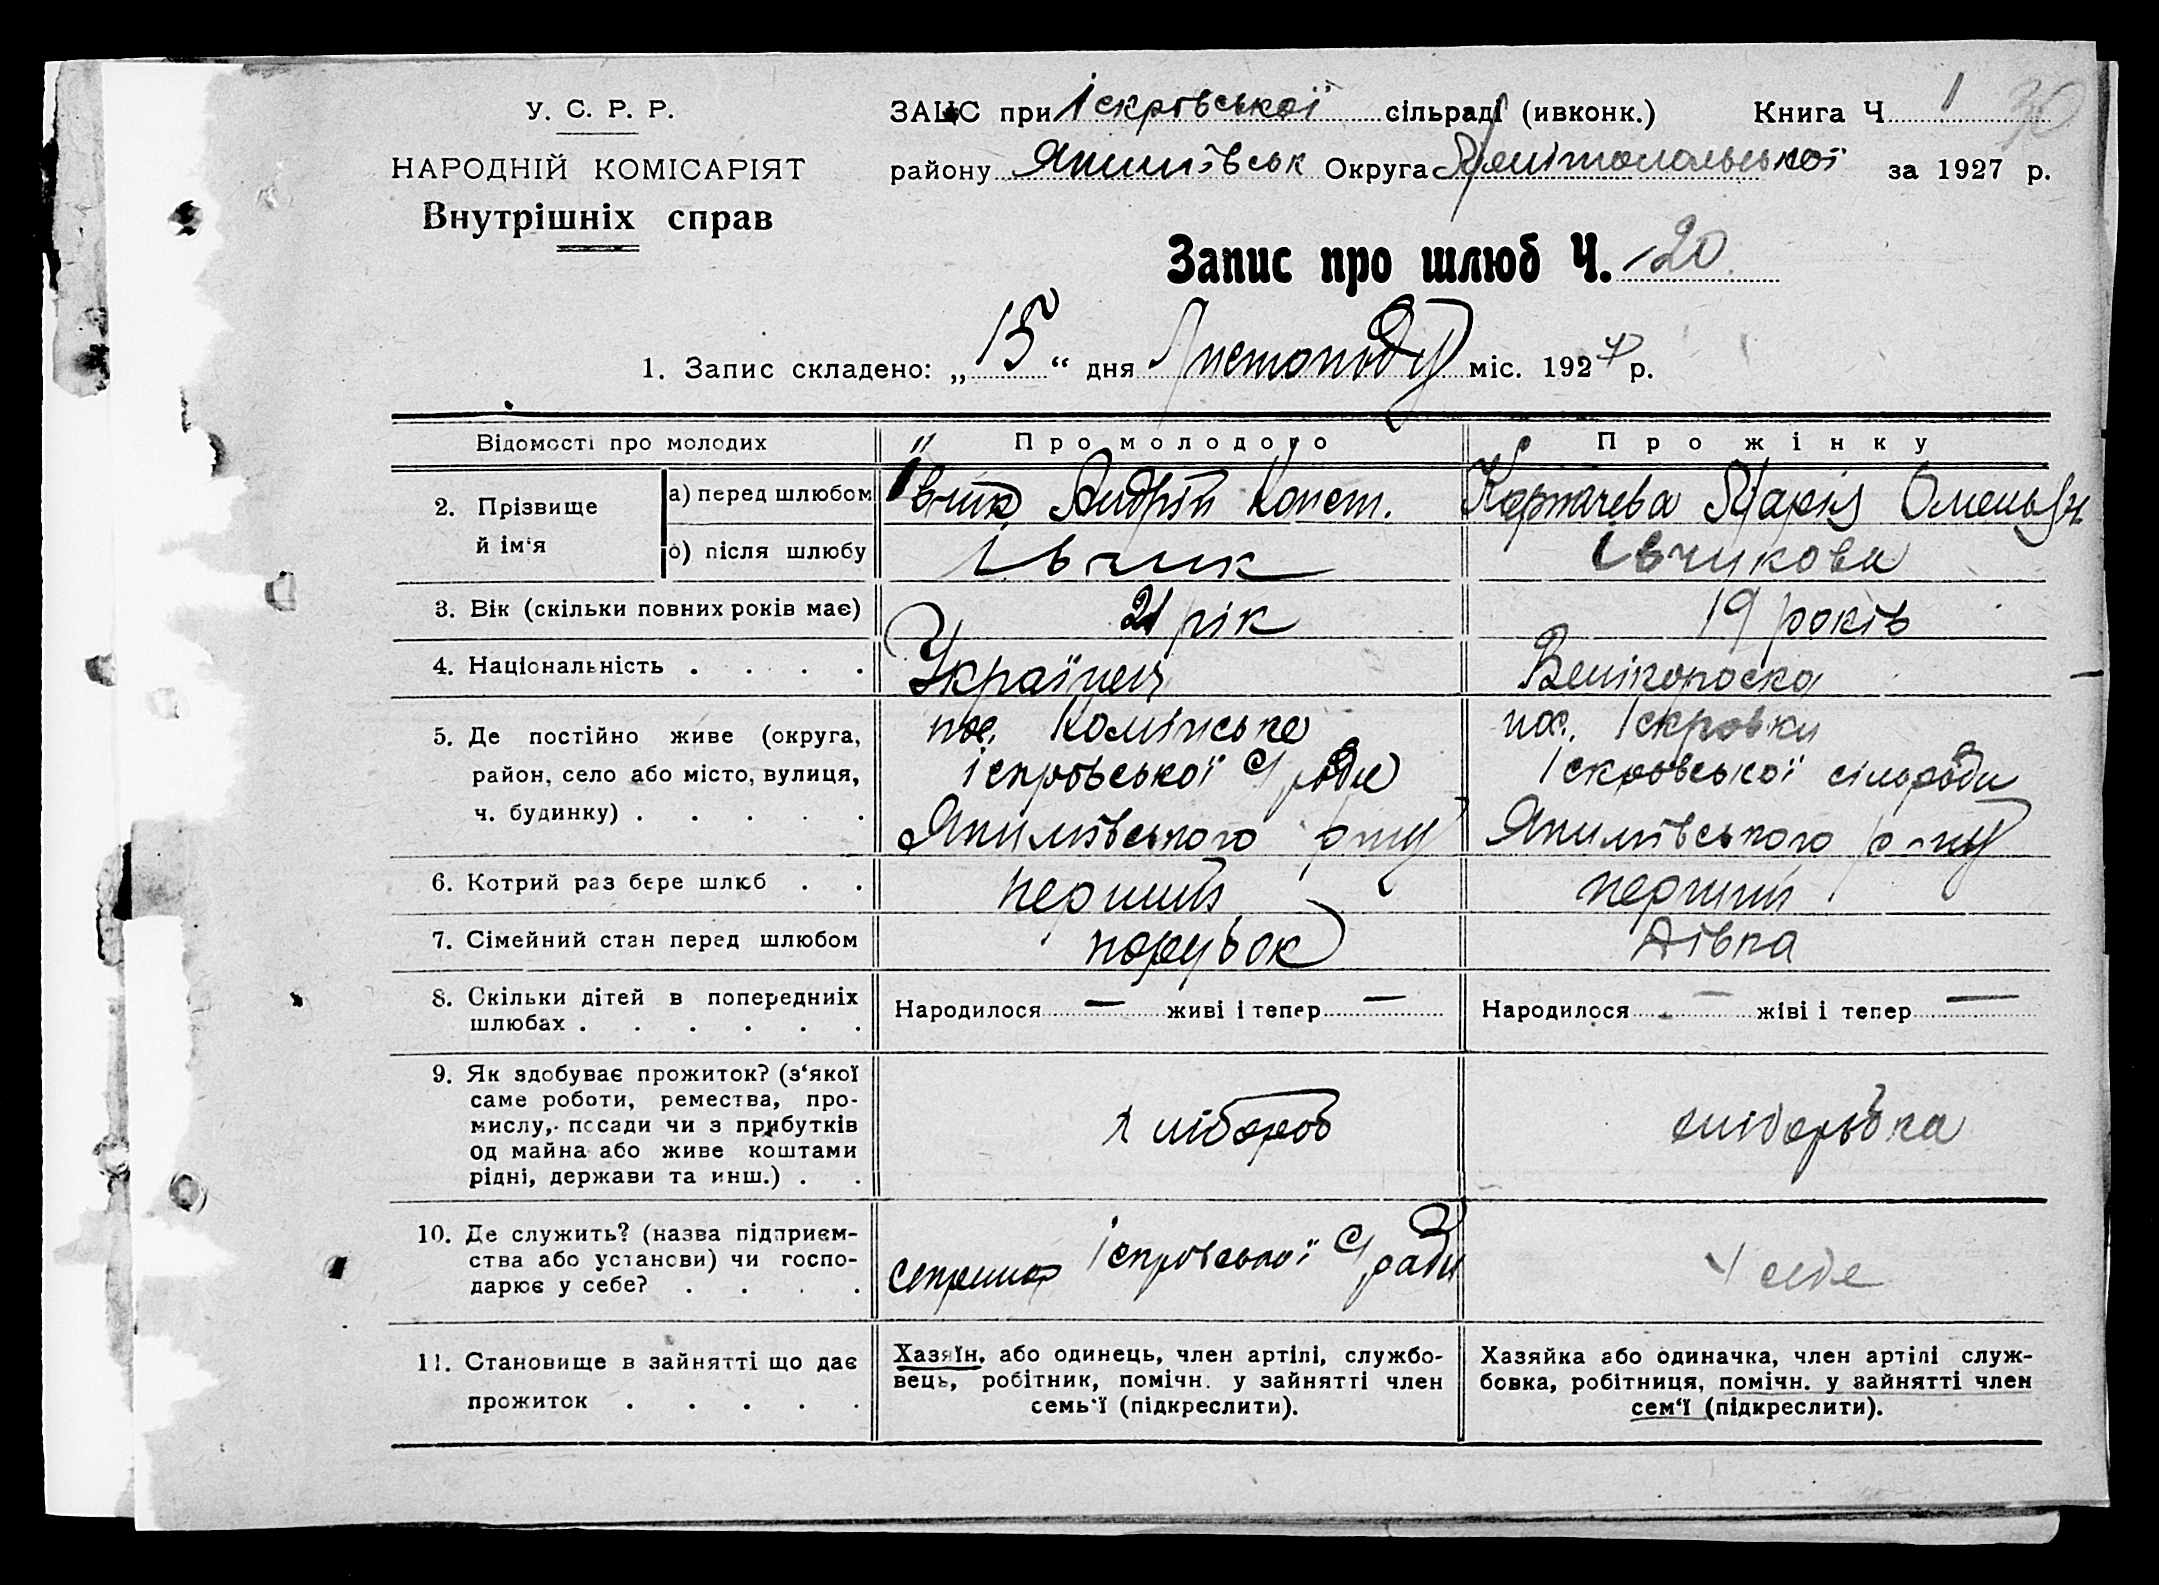 У. С. Р. Р.
НАРОДНІЙ КОМІСАРІЯТ
Внутрішніх справ
ЗАЦС при Іскрівської сільраді (ивконк.) Книга Ч 1 30
району Якимівськ Округа Мелітопольської за 1927 р.
Запис про шлюб Ч. 20
1. Запис складено: „15“ дня Листопаду міс. 1927 р.
Відомості про молодих
Про молодого
Про жінку
2. Прізвище й ім'я
а) перед шлюбом
Івчик Андрій Конст.
Карпачева Марія Омельян
б) після шлюбу
Івчик
Івчукова
3. Вік (скільки повних років має)
21 рік
19 років
4. Національність . . . .
Українець
Велікороска
5. Де постійно живе (округа,
район, село або місто, вулиця,
ч. будинку) . . . . .
пос.
Іскрівської С/ради
Якимівського р-ну
пос. Іскровки
Іскровської сільради
Якимівського р-ну
6. Котрий раз бере шлюб . .
перший
перший
7. Сімейний стан перед шлюбом
парубок
Дівка
8. Скільки дітей в попередниіх
шлюбах . . . . . .
Народилося — живі і тепер —
Народилося — жіві і тепер —
9. Як здобуває прожиток? (з'якої
саме роботи, ремества, про-
мислу, посади чи з прибутків
од майна або живе коштами
рідні, держави та инш.) . .
хлібороб
хліборобка
10. Де служить? (назва підприєм-
ства або установи) чи госпо-
дарює у себе? . . . .
секретар Іскрівської С/ради
У себе
11. Становище в зайнятті що дає
прожиток . . . . .
Хазяїн, або одинець, член артілі, службо-
вець, робітник, помічн. у зайнятті член
семь'ї (підкреслити).
Хазяйка або одиначка, член артілі служ-
бовка, робітниця, помічн. у зайнятті член
сем'ї (підкреслити).